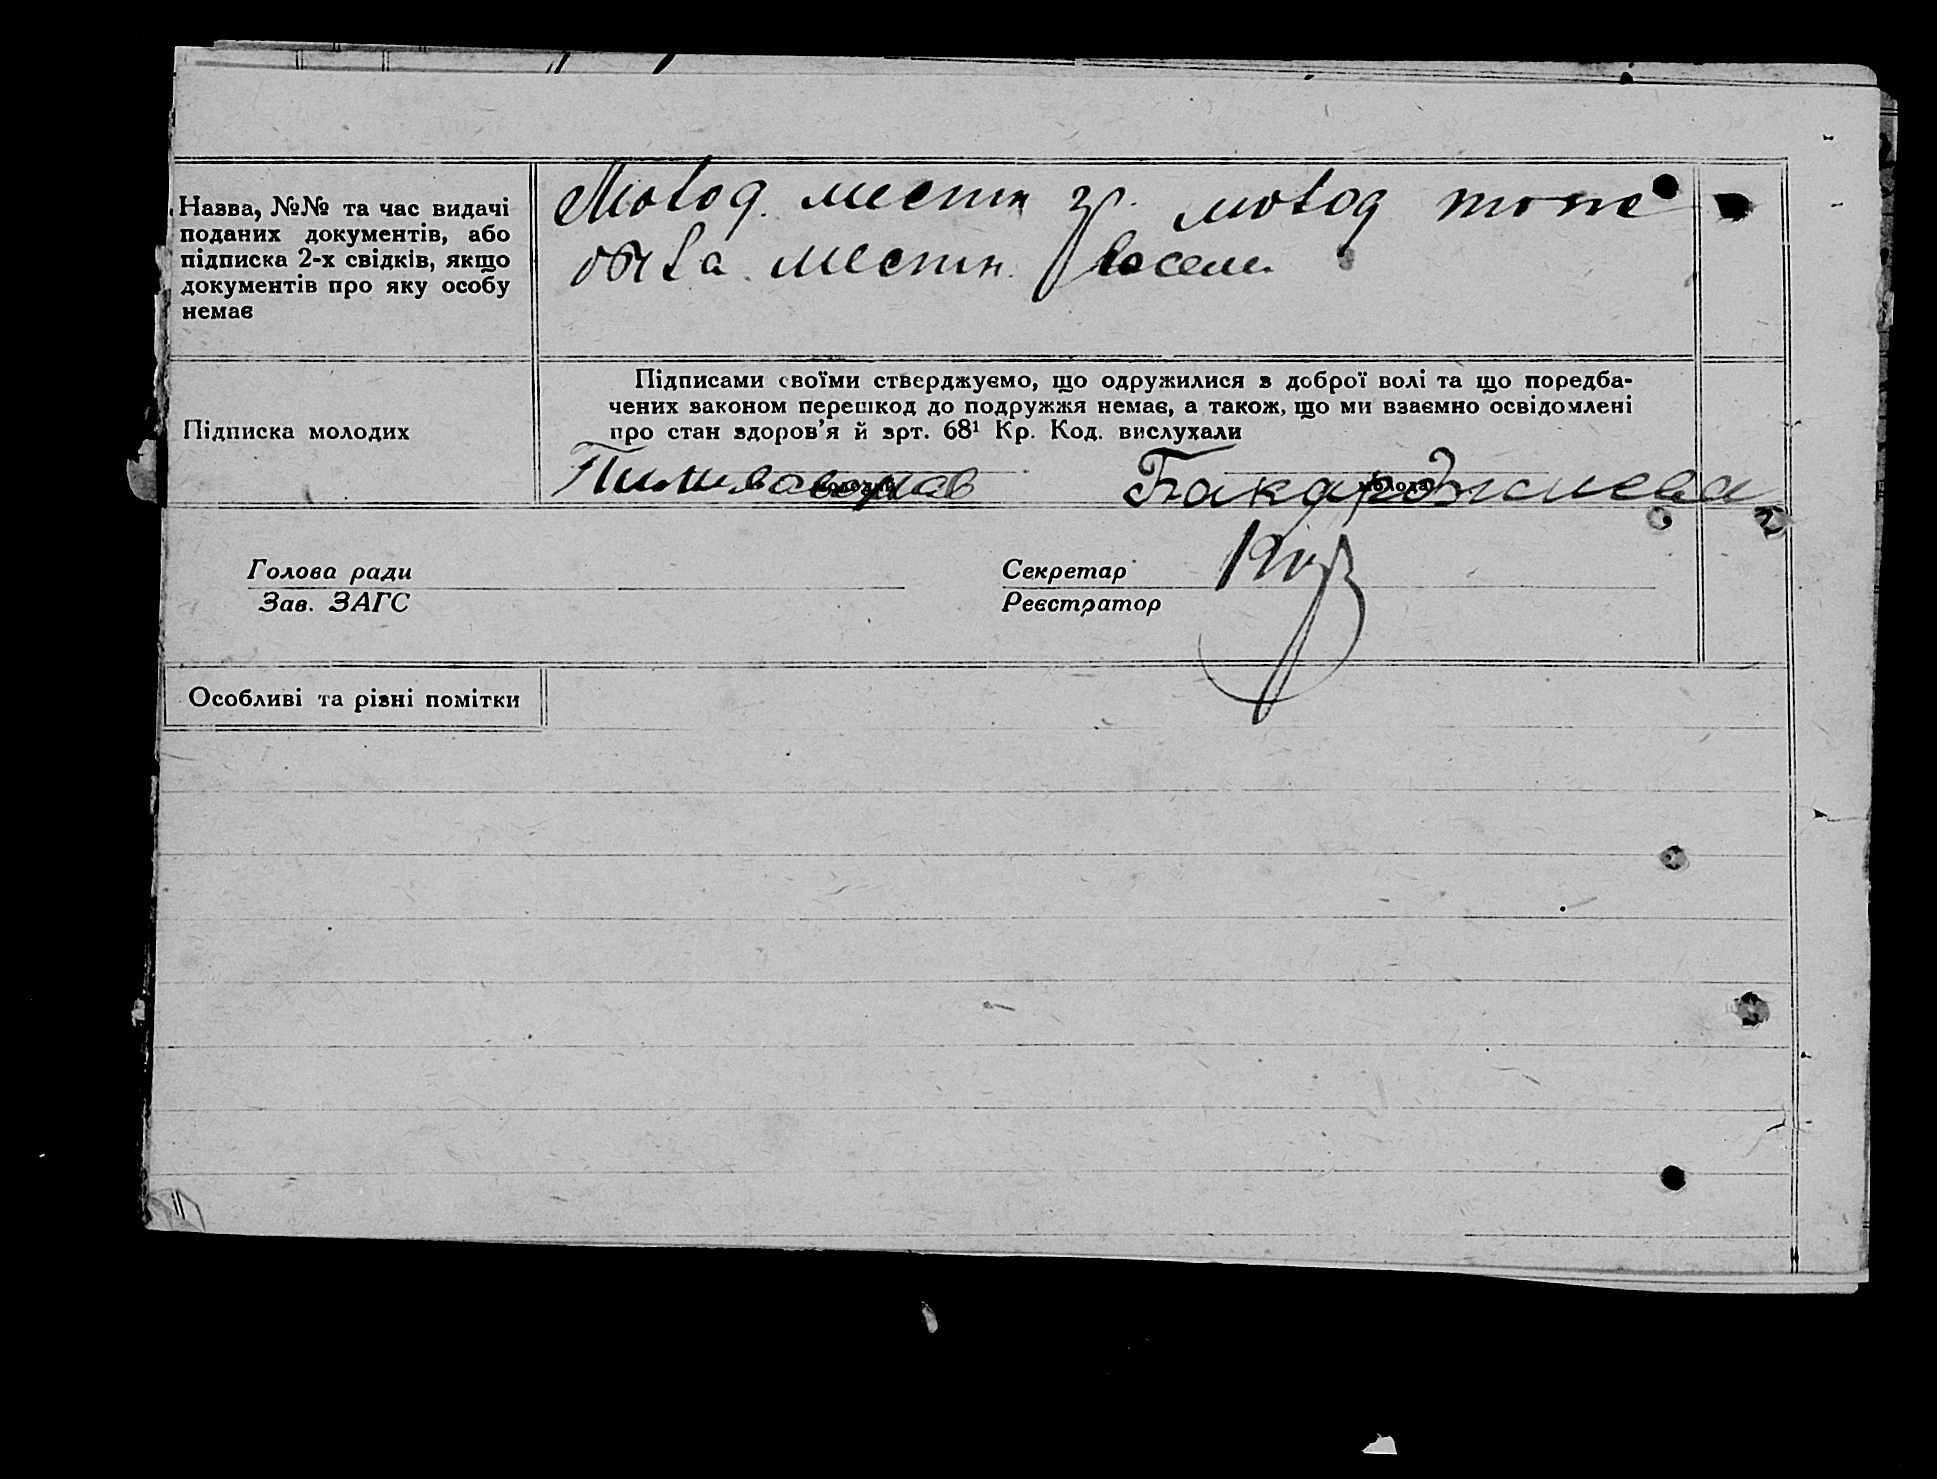 Назва, №№ та час видачі
поданих документів, або
підписка 2-х свідків, якщо
документів про яку особу
немає
Молод. местн гр. молод тоже
оба местн.
Підписка молодих
Підписами своїми стверджуємо, що одружилися з доброї волі та що передба-
чених законом перешкод до подружжя немає, а також, що ми взаємно освідомлені
про стан здоров'я й арт. 68¹ Кр. Код. вислухали
молодий
молода
Бакарджиева
Голова ради
Зав. ЗАГС
Секретар
Реєстратор
Особливі та різні помітки